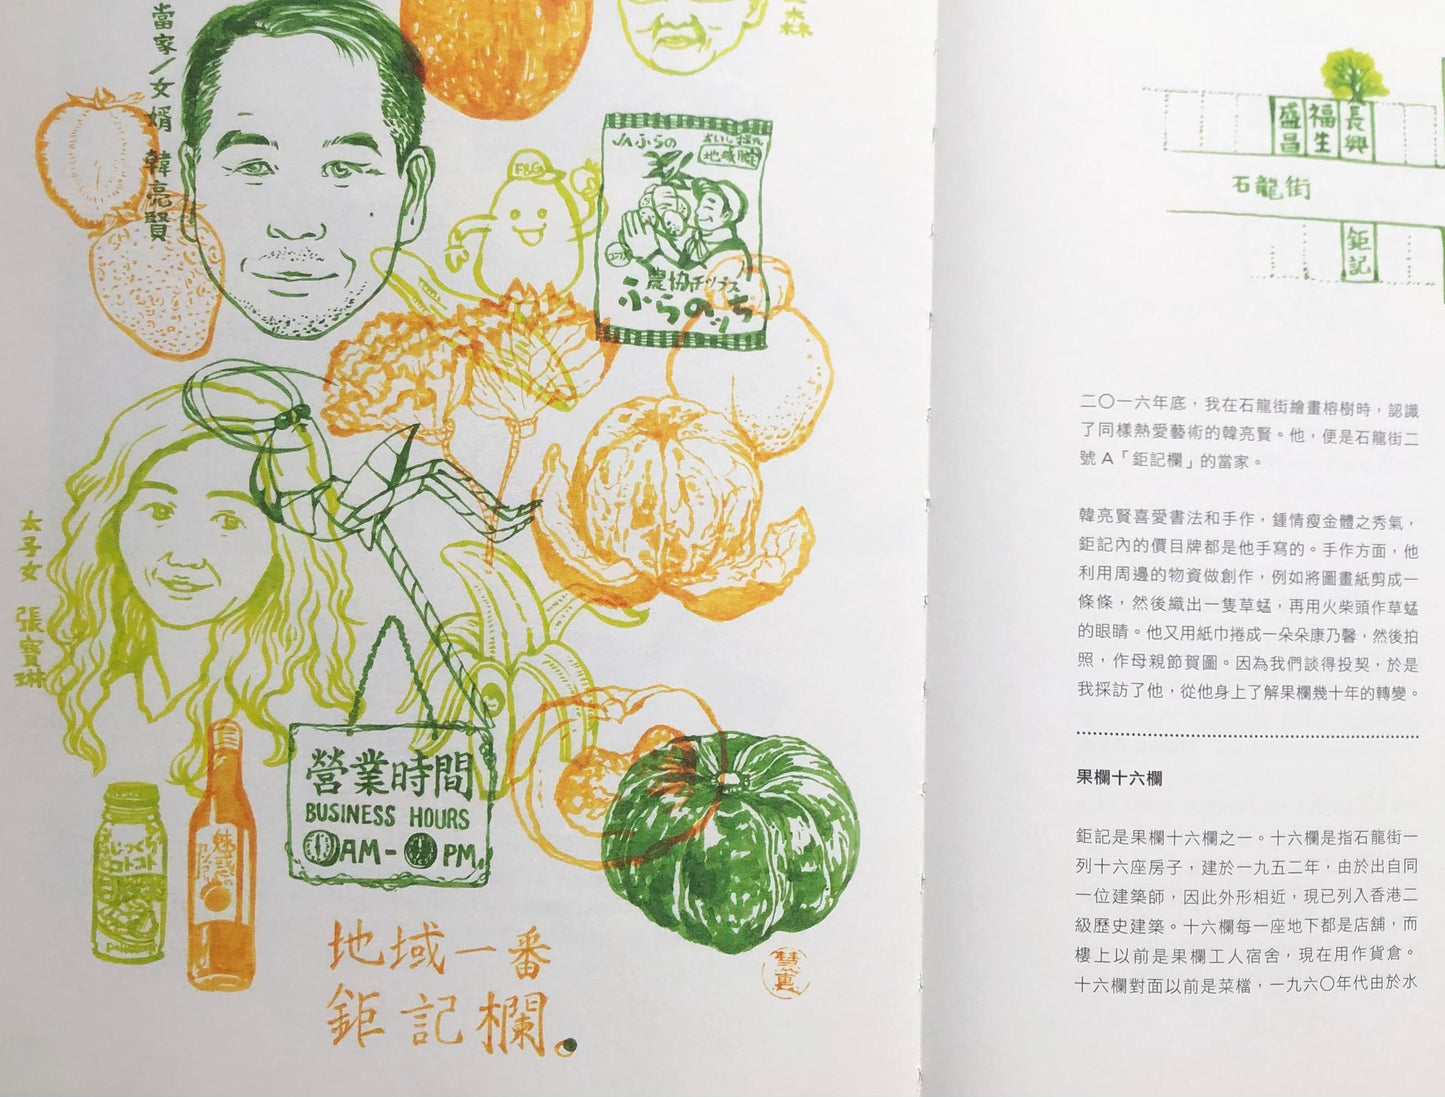 當家／女婿 韓亮賢
森
F&G
JAふらの
農協チップス
ふらのッち
太子女 張寶琳
營業時間
BUSINESS HOURS
AM - PM
じっくり
コトコト
魅惑の
地域一番
鉅記欄。
盛昌
福生
長興
石龍街
鉅記
二〇一六年底，我在石龍街繪畫榕樹時，認識
了同樣熱愛藝術的韓亮賢。他，便是石龍街二
號 A「鉅記欄」的當家。
韓亮賢喜愛書法和手作，鍾情瘦金體之秀氣，
鉅記內的價目牌都是他手寫的。手作方面，他
利用周邊的物資做創作，例如將圖畫紙剪成一
條條，然後織出一隻草蜢，再用火柴頭作草蜢
的眼睛。他又用紙巾捲成一朵朵康乃馨，然後拍
照，作母親節賀圖。因為我們談得投契，於是
我採訪了他，從他身上了解果欄幾十年的轉變。
果欄十六欄
鉅記是果欄十六欄之一。十六欄是指石龍街一
列十六座房子，建於一九五二年，由於出自同
一位建築師，因此外形相近，現已列入香港二
級歷史建築。十六欄每一座地下都是店舖，而
樓上以前是果欄工人宿舍，現在用作貨倉。
十六欄對面以前是菜檔，一九六〇年代由於水